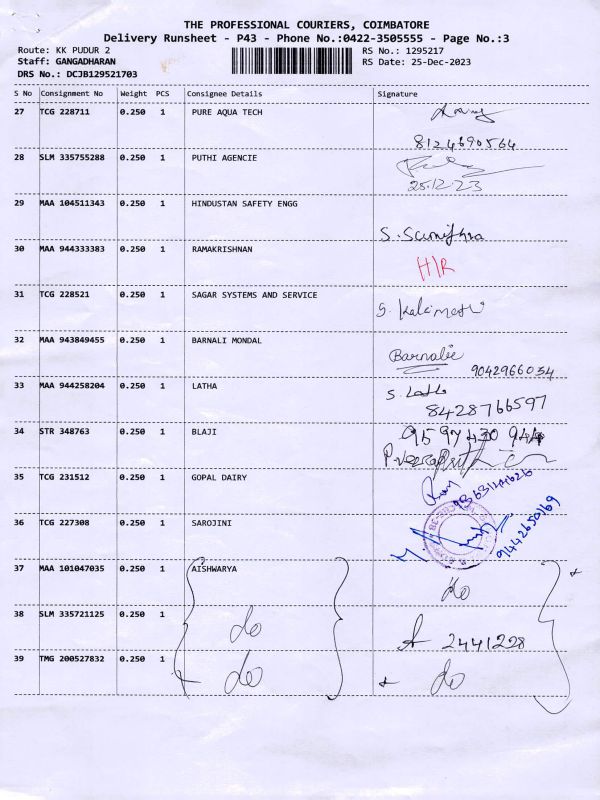 THE PROFESSIONAL COURIERS, COIMBATORE
Delivery Runsheet - P43 - Phone No.:0422-3505555 - Page No.:3
Route: KK PUDUR 2 RS No.: 1295217
Staff: GANGADHARAN RS Date: 25-Dec-2023
DRS No.: DCJB129521703
S No Consignment No Weight PCS Consignee Details Signature
27 TCG 228711 0.250 1 PURE AQUA TECH
8124690564
28 SLM 335755288 0.250 1 PUTHI AGENCIE
25.12.23
29 MAA 104511343 0.250 1 HINDUSTAN SAFETY ENGG
S. Sumithra
30 MAA 944333383 0.250 1 RAMAKRISHNAN
H/R
31 TCG 228521 0.250 1 SAGAR SYSTEMS AND SERVICE
32 MAA 943849455 0.250 1 BARNALI MONDAL
Barnalie
9042966054
33 MAA 944258204 0.250 1 LATHA
S. Latha
8428766597
34 STR 348763 0.250 1 BLAJI
35 TCG 231512 0.250 1 GOPAL DAIRY
36 TCG 227308 0.250 1 SAROJINI
9442650169
37 MAA 101047035 0.250 1 AISHWARYA
do
38 SLM 335721125 0.250 1 do
2441228
39 TMG 200527832 0.250 1 do do